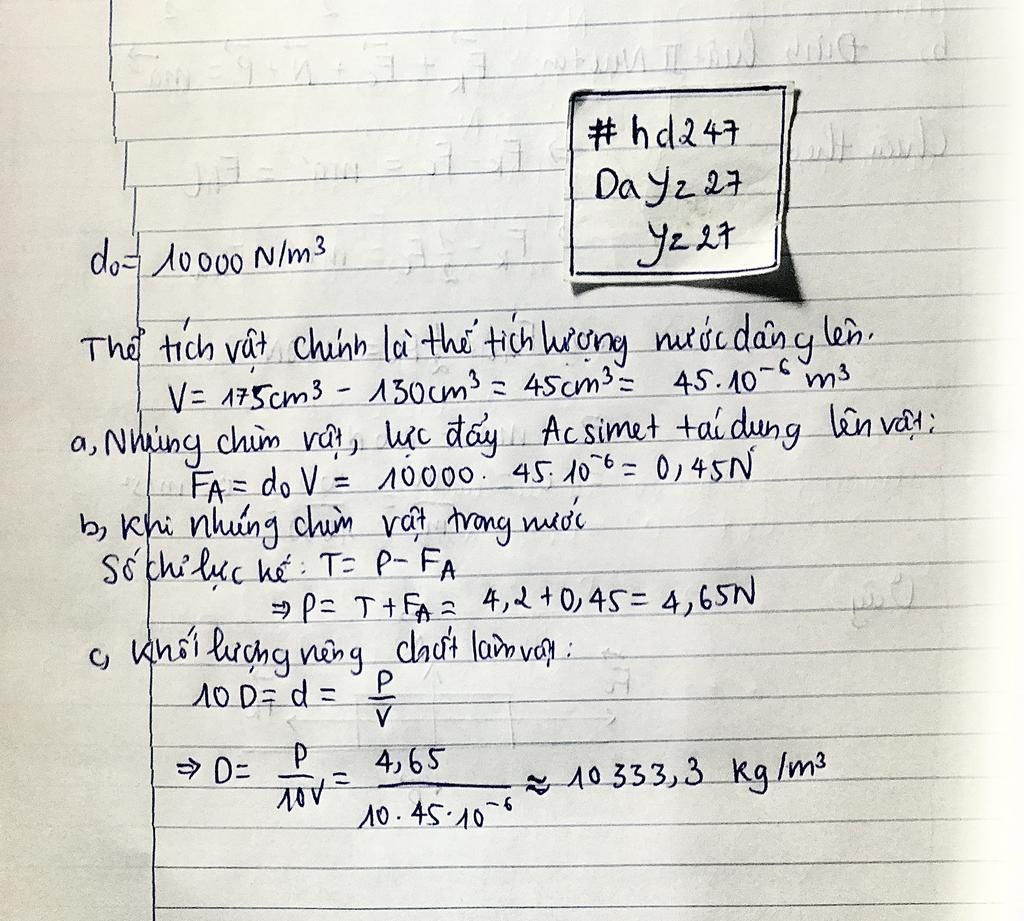 #hd247
Dayz27
yz27
d₀= 10000 N/m³
Thể tích vật chính là thể tích lượng nước dâng lên.
V= 175cm³ - 130cm³ = 45cm³ = 45.10⁻⁶ m³
a, Nhúng chìm vật, lực đẩy Acsimet tác dụng lên vật:
F_A = d₀ V = 10000. 45.10⁻⁶ = 0,45N
b, Khi nhúng chìm vật trong nước
Số chỉ lực kế: T= P- F_A
⇒ P= T + F_A = 4,2+0,45 = 4,65N
c, Khối lượng riêng chất làm vật:
10 D = d = P/V
⇒ D= P/10V = 4,65/10.45.10⁻⁶ ≈ 10333,3 kg/m³